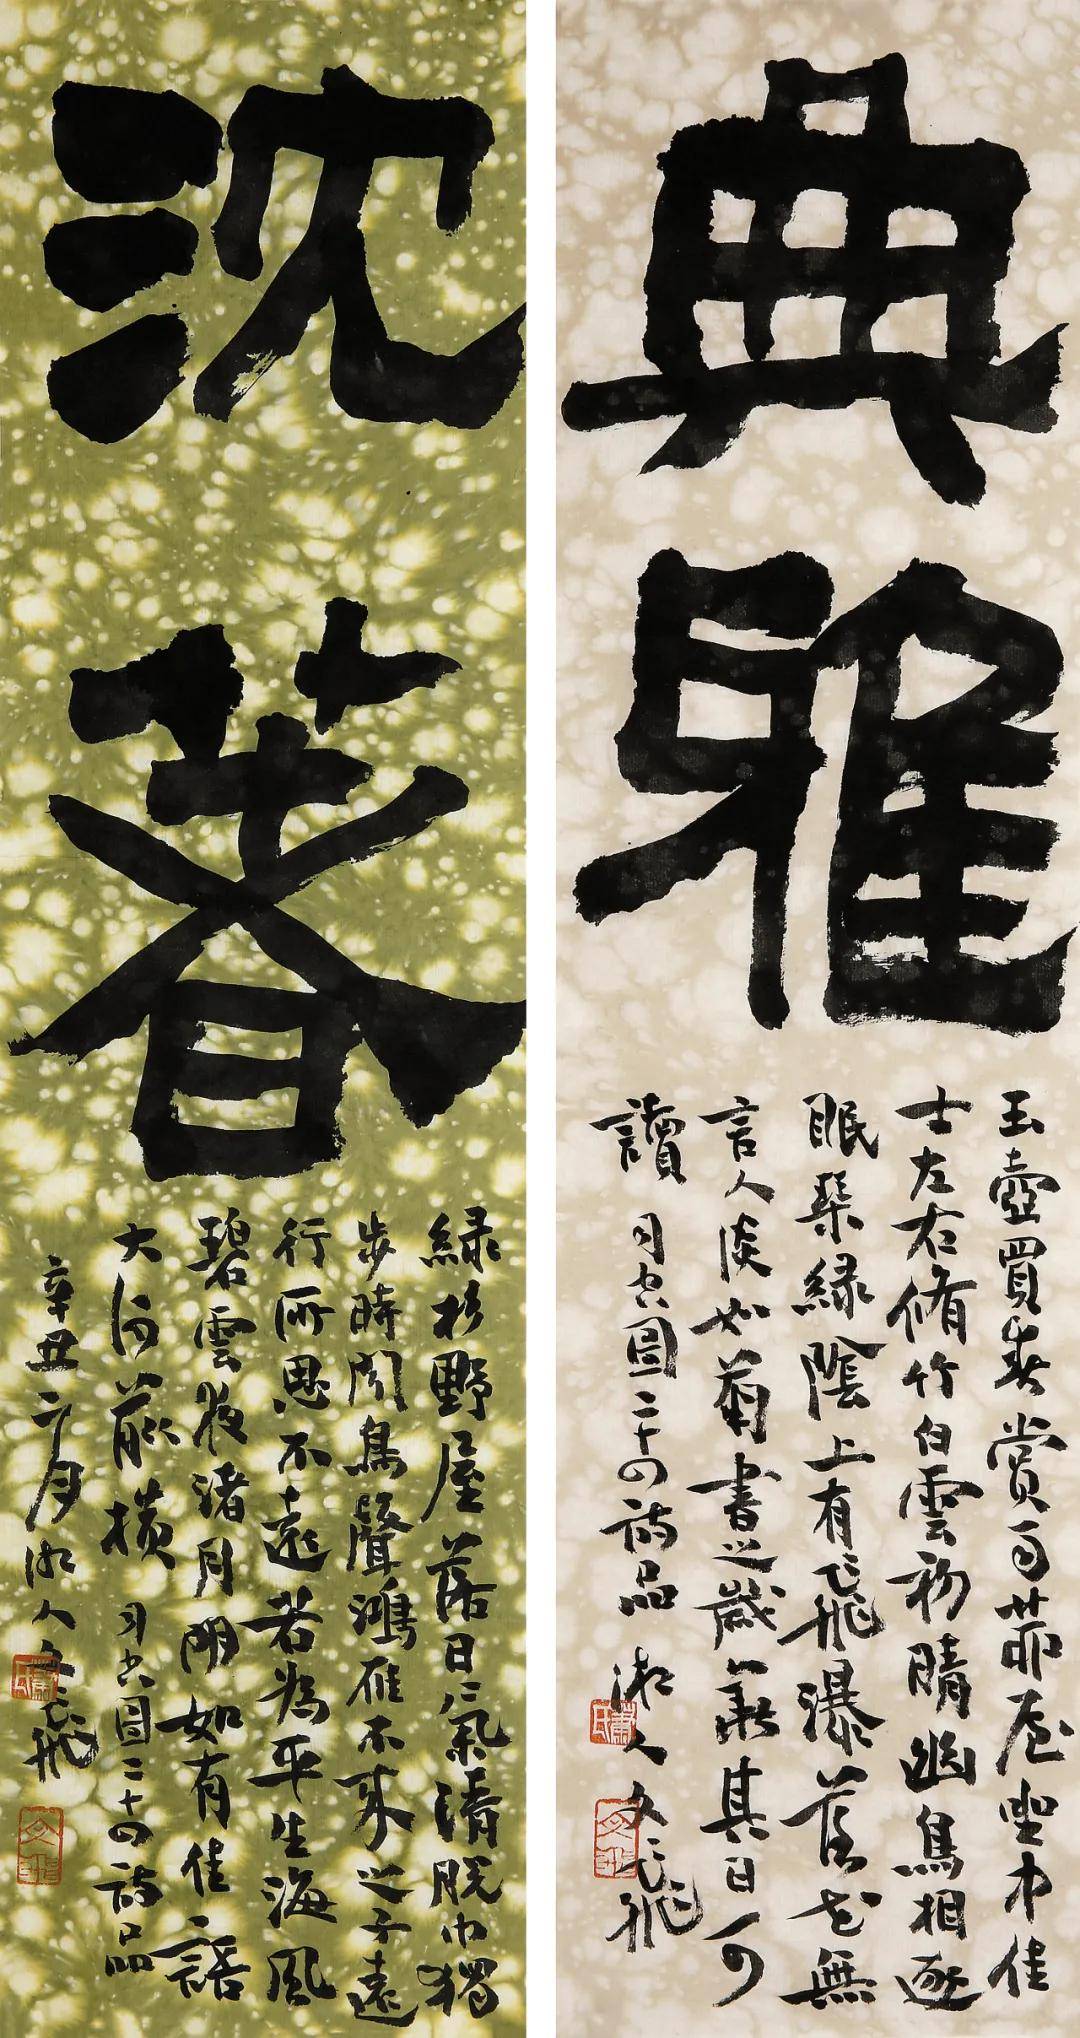 典雅
玉壺買春賞雨茆屋坐中佳
士左右脩竹白雲初晴幽鳥相逐
眠琴緑陰上有飛瀑落花無
言人淡如菊書之歲華其曰可
讀 司空圖二十四詩品 湘人文飛
蕭氏
文飛
沈著
緑杉野屋落日氣清脱巾獨
步時聞鳥聲鴻雁不來之子遠
行所思不遠若為平生海風
碧雲夜渚月明如有佳語
大河前横 司空圖二十四詩品
辛丑二月湘人文飛
蕭氏
文飛